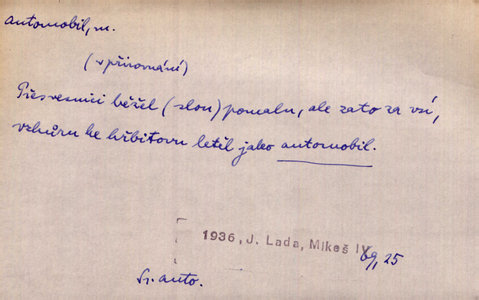 automobil, m.
(v přirovnání)
Přes vesnici běžel (slon) pomalu, ale zato za vsí,
vzhůru ke hřbitovu letěl jako automobil.
1936, J. Lada, Mikeš IV
69, 25
Sr. auto.